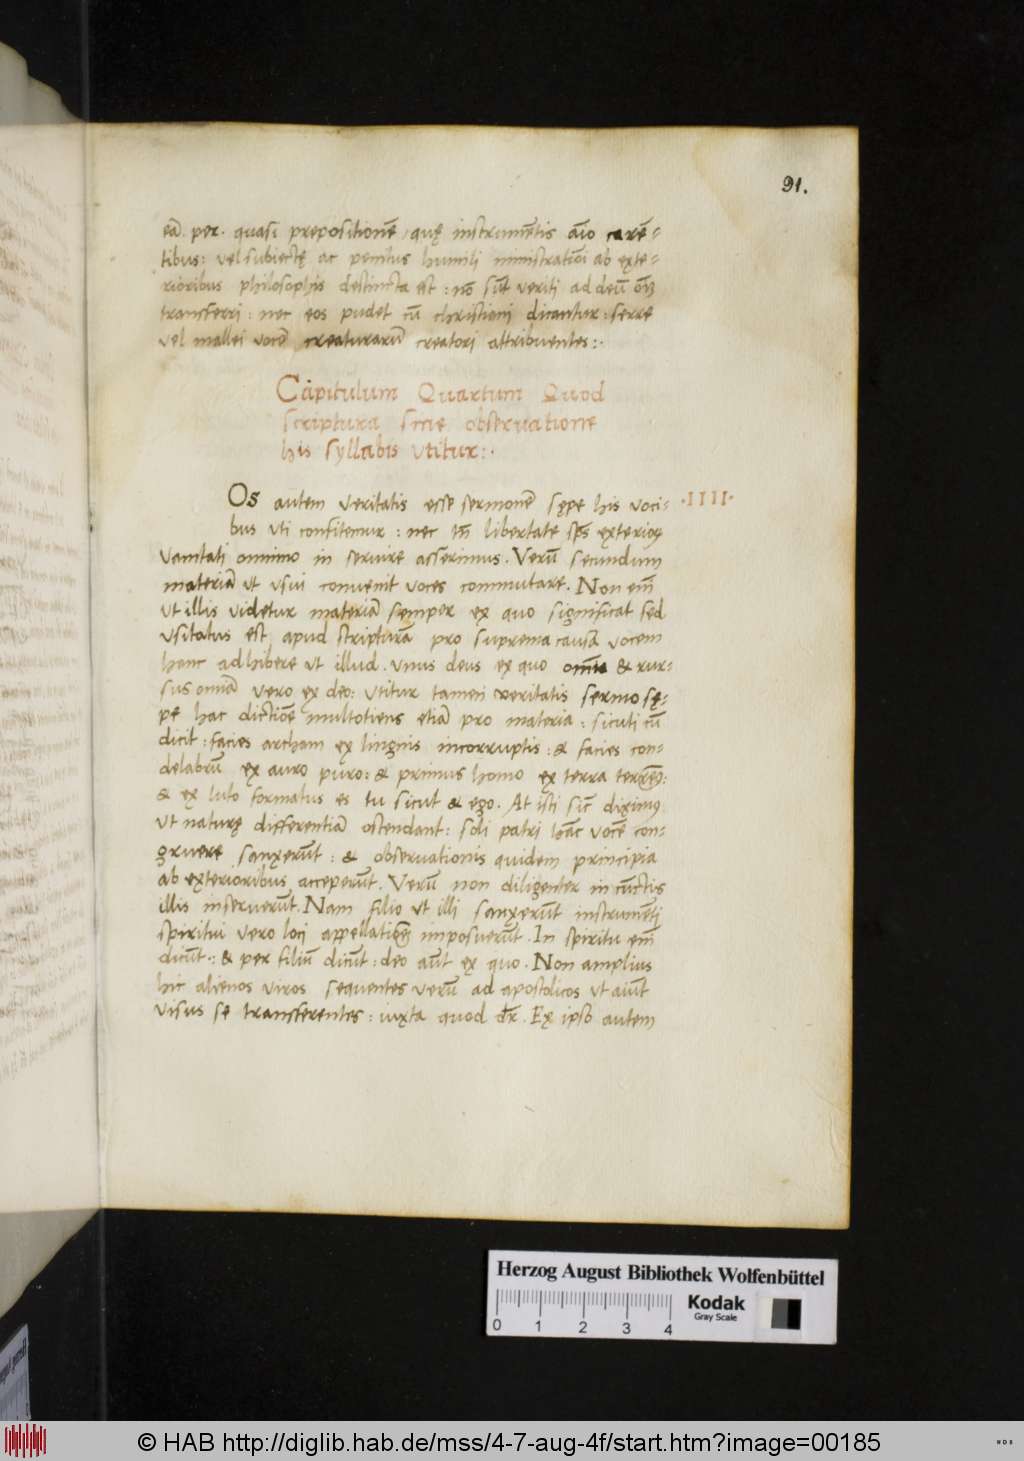 91.
eā. per. quasi prepositionē, quę instrumētis aīo carē-
tibus: vel subiectę ac penitus humili ministrationi ab exte-
rioribus philosophis destincta est: nō sūt veriti ad deū
transferri: nec eos pudet cū christiani dicantur: serre
vel mallei vocē creaturarū creatori attribuentes:.
Capitulum Quartum Quod
scriptura sine obseruatione
his syllabis vtitur:.
Os autem veritatis esse sermonē sępe his voci- .IIII.
bus vti confitemur: nec tn̄ libertatē sps̄ exterior
vanitati omnino in seruire asserimus. Verū secundum
materiā vt vsui conuenit voces commutare. Non em̄
vt illis videtur materiā semper ex quo significat sed
vsitatus est apud scripturā pro suprema causa vocem
hanc adhibere vt illud. vnus deus ex quo omnia & rur-
sus omnia vero ex deo: vtitur tamen veritatis sermo sę-
pe hac dictiōe multotiens etiā pro materia: sicuti cū
dicit: facies archam ex lingnis incorruptis: & facies con-
delabrū ex auro puro: & primus homo ex terra
& ex luto formatus es tu sicut & ego. At isti sic̄ diximus
vt naturę differentiam ostendant: soli patri hāc vocē con-
gruere sanxerūt: & obseruationis quidem principia
ab exterioribus acceperūt. Verū non diligenter in cūctis
illis inseruerūt. Nam filio vt illi sanxerūt instrumēti
spiritui vero loci appellationē imposuerūt. In spiritu em̄
dicūt: & per filiū dicūt: deo aūt ex quo. Non amplius
hic alienos viros sequentes verū ad apostolicos vt aiūt
visus se transferentes: iuxta quod dr̄. Ex ipso autem
Herzog August Bibliothek Wolfenbüttel
Kodak
Gray Scale
0 1 2 3 4
© HAB http://diglib.hab.de/mss/4-7-aug-4f/start.htm?image=00185